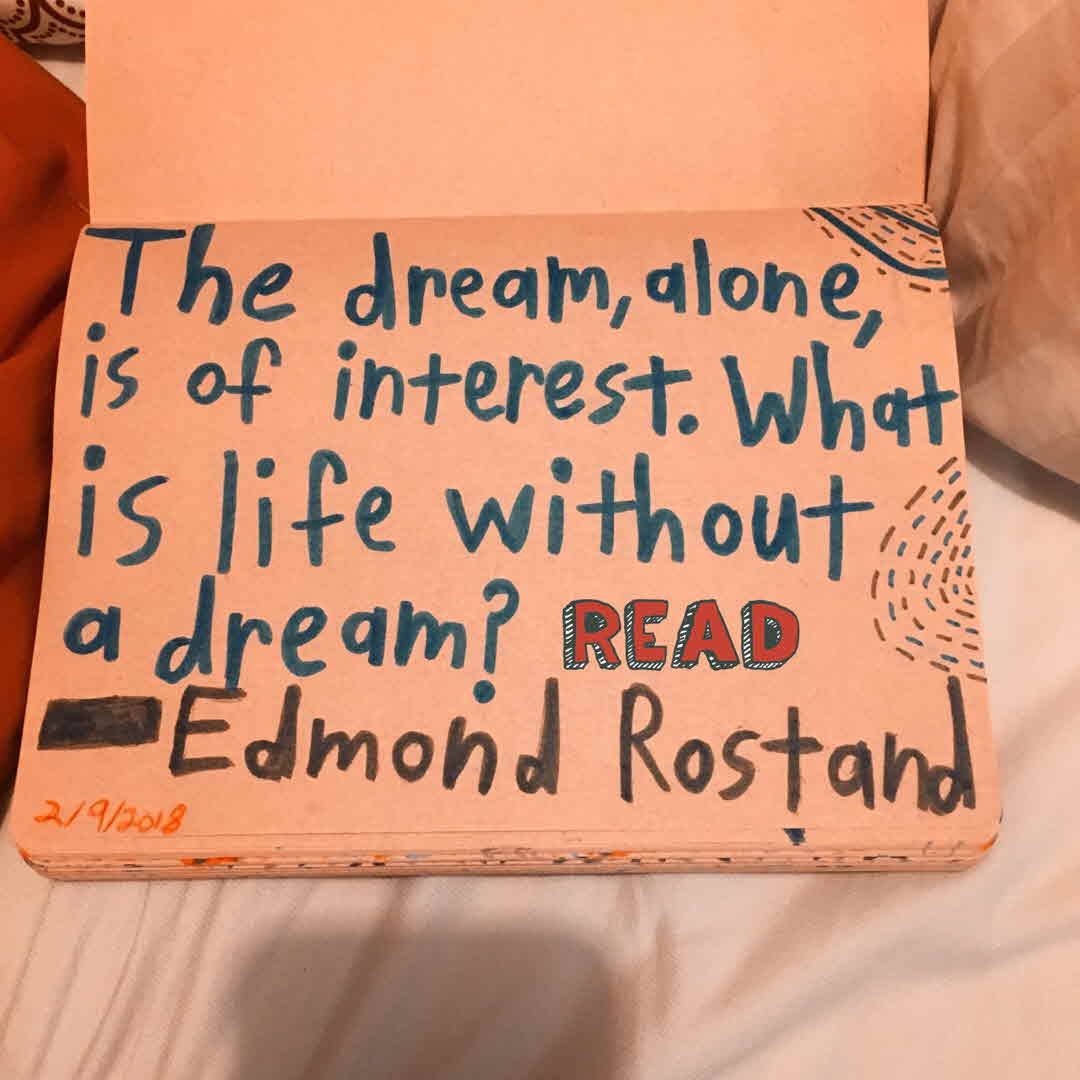 The dream, alone,
is of interest. What
is life without
a dream? READ
- Edmond Rostand
2/9/2018